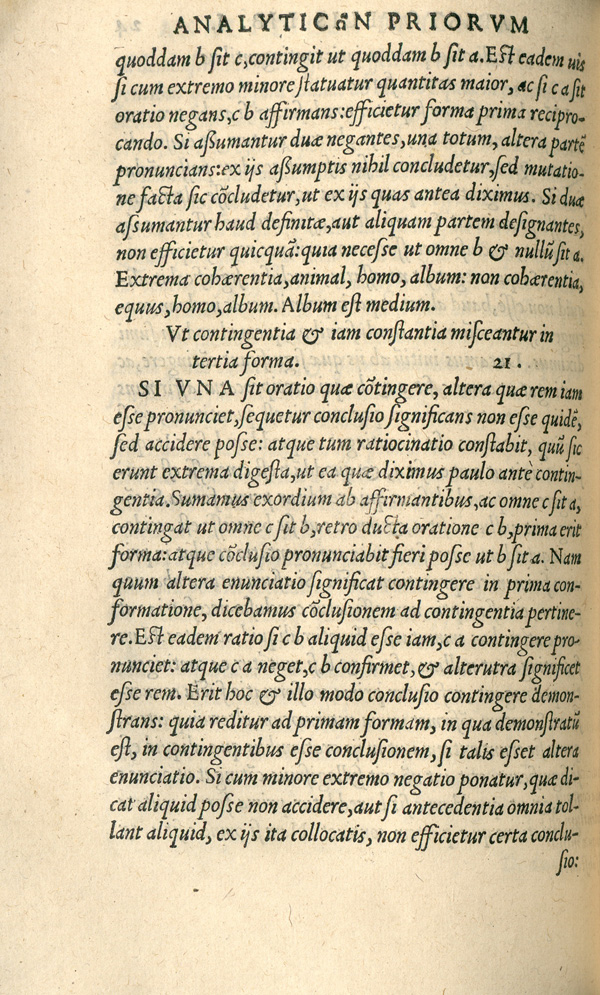 ANALYTICῶN PRIORVM
quoddam b ſit c,contingit ut quoddam b ſit a.Eſt eadem uis
ſi cum extremo minore ſtatuatur quantitas maior, ac ſi c a ſit
oratio negans,c b affirmans:efficietur forma prima recipro-
cando. Si aßumantur duæ negantes,una totum, altera partẽ
pronuncians:ex ijs aßumptis nihil concludetur,ſed mutatio-
ne facta ſic cõcludetur,ut ex ijs quas antea diximus. Si duæ
aſſumantur haud definitæ,aut aliquam partem deſignantes,
non efficietur quicquã:quia neceſſe ut omne b & nullũ ſit a.
Extrema cohærentia,animal, homo, album: non cohærentia,
equus,homo,album. Album eſt medium.
Vt contingentia & iam conſtantia miſceantur in
tertia forma. 21.
SI VNA ſit oratio quæ cõtingere, altera quæ rem iam
eſſe pronunciet,ſequetur concluſio ſignificans non eſſe quidẽ,
ſed accidere poſſe: atque tum ratiocinatio conſtabit, quũ ſic
erunt extrema digeſta,ut ea quæ diximus paulo ante contin-
gentia.Sumamus exordium ab affirmantibus,ac omne c ſit a,
contingat ut omne c ſit b,retro ducta oratione c b,prima erit
forma:atque cõcluſio pronunciabit fieri poſſe ut b ſit a. Nam
quum altera enunciatio ſignificat contingere in prima con-
formatione, dicebamus cõcluſionem ad contingentia pertine-
re.Eſt eadem ratio ſi c b aliquid eſſe iam,c a contingere pro-
nunciet: atque c a neget,c b confirmet,& alterutra ſignificet
eſſe rem. Erit hoc & illo modo concluſio contingere demon-
ſtrans: quia reditur ad primam formam, in qua demonſtratũ
eſt, in contingentibus eſſe concluſionem,ſi talis eſſet altera
enunciatio. Si cum minore extremo negatio ponatur,quæ di-
cat aliquid poſſe non accidere,aut ſi antecedentia omnia tol-
lant aliquid, ex ijs ita collocatis, non efficietur certa conclu-
ſio: